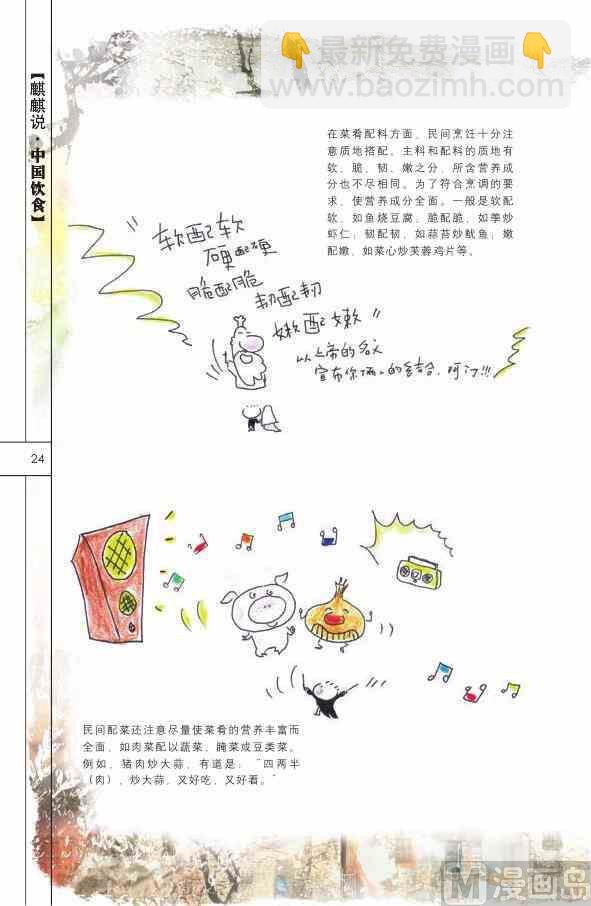 最新免费漫画
www.baozimh.com
【麒麟说·中国饮食】
在菜肴配料方面，民间烹饪十分注
意质地搭配。主料和配料的质地有
软、脆、韧、嫩之分，所含营养成
分也不尽相同。为了符合烹调的要
求，使营养成分全面。一般是软配
软，如鱼烧豆腐，脆配脆，如荸炒
虾仁；韧配韧，如蒜苔炒鱿鱼；嫩
配嫩，如菜心炒芙蓉鸡片等。
软配软
硬配硬
脆配脆
韧配韧
嫩配嫩"
以上帝的名义
宣布你俩的结合，阿门!!!
24
民间配菜还注意尽量使菜肴的营养丰富而
全面，如肉菜配以蔬菜、腌菜或豆类菜。
例如，猪肉炒大蒜，有道是：“四两半
（肉），炒大蒜，又好吃，又好看。”
M 漫画岛